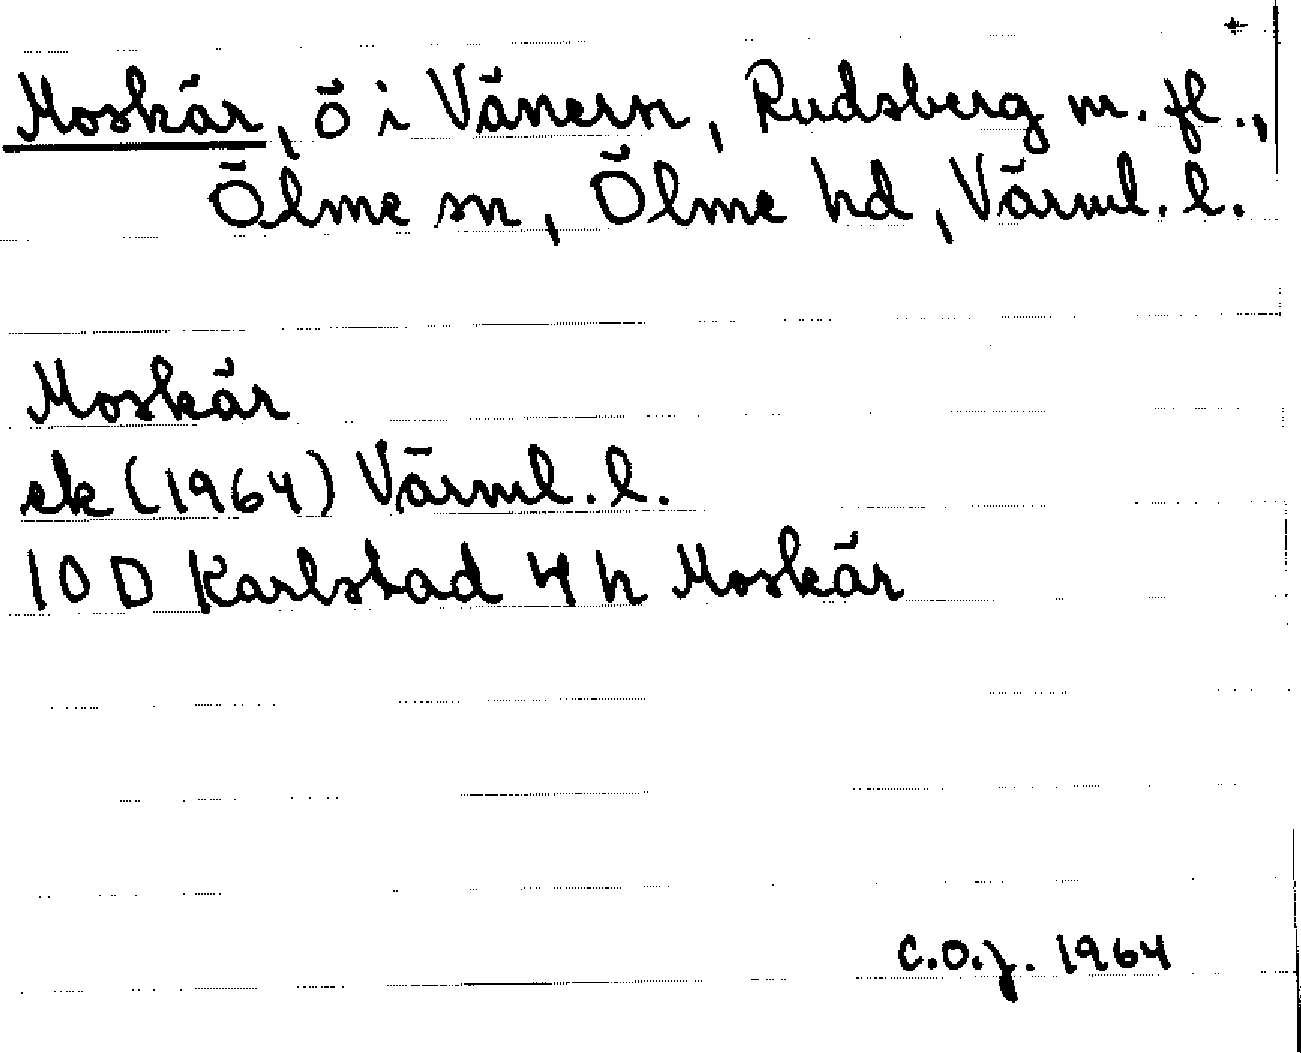 Moskär, ö i Vänern, Rudsberg m. fl.,
Ölme sn, Ölme hd, Värml. l.
Moskär
ek (1964) Värml. l.
10 D Karlstad 4 h Moskär
C.O.J. 1964